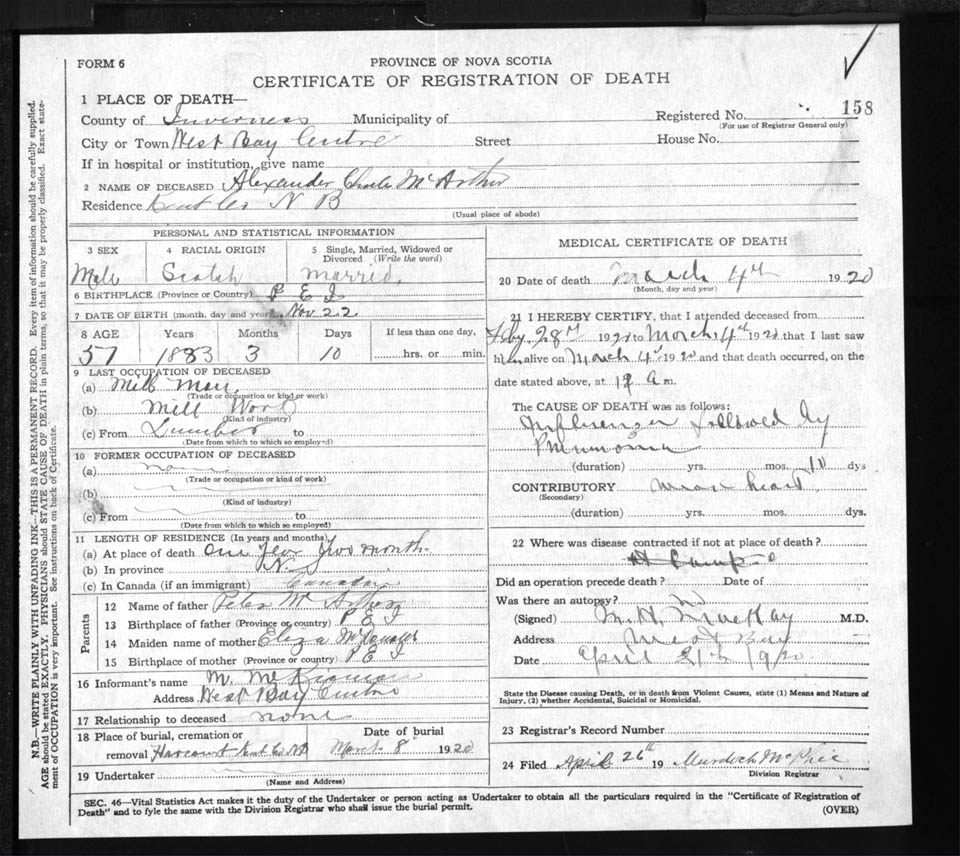 FORM 6
PROVINCE OF NOVA SCOTIA
CERTIFICATE OF REGISTRATION OF DEATH
158
1 PLACE OF DEATH—
County of Inverness Municipality of Registered No.
(For use of Registrar General only)
City or Town West Bay Centre Street House No.
If in hospital or institution, give name
2 NAME OF DECEASED Alexander Charles McArthur
Residence N B
(Usual place of abode)
PERSONAL AND STATISTICAL INFORMATION
3 SEX 4 RACIAL ORIGIN 5 Single, Married, Widowed or Divorced (Write the word)
Male Scotch Married
6 BIRTHPLACE (Province or Country) P E I
7 DATE OF BIRTH (month, day and year) Nov 22
8 AGE Years Months Days If less than one day,
57 1883 3 10 hrs. or min.
9 LAST OCCUPATION OF DECEASED
(a) Mill Man
(Trade or occupation or kind or work)
(b) Mill Work
(Kind of industry)
(c) From Lumber to
(Date from which to which so employed)
10 FORMER OCCUPATION OF DECEASED
(a) none
(Trade or occupation or kind of work)
(b)
(Kind of industry)
(c) From to
(Date from which to which so employed)
11 LENGTH OF RESIDENCE (In years and months)
(a) At place of death One Year Two month
(b) In province
(c) In Canada (if an immigrant) Canadian
Parents
12 Name of father Peter McArthur
13 Birthplace of father (Province or country) P E I
14 Maiden name of mother Eliza McDonald
15 Birthplace of mother (Province or country) P E I
16 Informant's name M. McKinnon
Address West Bay Centre
17 Relationship to deceased none
18 Place of burial, cremation or Date of burial
removal Harcourt Kent Co NB March 8 1920
19 Undertaker
(Name and Address)
MEDICAL CERTIFICATE OF DEATH
20 Date of death March 4th 1920
(Month, day and year)
21 I HEREBY CERTIFY, that I attended deceased from
Feby 28th 1920 to March 4th 1920 that I last saw
him alive on March 4th 1920 and that death occurred, on the
date stated above, at a m.
The CAUSE OF DEATH was as follows:
Influenza followed by
Pneumonia
(duration) yrs. mos. 10 dys
CONTRIBUTORY weak heart
(Secondary)
(duration) yrs. mos. dys.
22 Where was disease contracted if not at place of death?
at Camp
Did an operation precede death? Date of
Was there an autopsy? No
(Signed) M. H. MacKay M.D.
Address West Bay
Date April 21st 1920
State the Disease causing Death, or in death from Violent Causes, state (1) Means and Nature of
Injury, (2) whether Accidental, Suicidal or Homicidal.
23 Registrar's Record Number
24 Filed April 26th 19 Murdoch McPhie
Division Registrar
SEC. 46—Vital Statistics Act makes it the duty of the Undertaker or person acting as Undertaker to obtain all the particulars required in the "Certificate of Registration of
Death" and to fyle the same with the Division Registrar who shall issue the burial permit. (OVER)
N.B.—WRITE PLAINLY WITH UNFADING INK—THIS IS A PERMANENT RECORD. Every item of information should be carefully supplied.
AGE should be stated EXACTLY. PHYSICIANS should STATE CAUSE OF DEATH in plain terms, so that it may be properly classified. Exact state-
ment of OCCUPATION is very important. See instructions on back of Certificate.